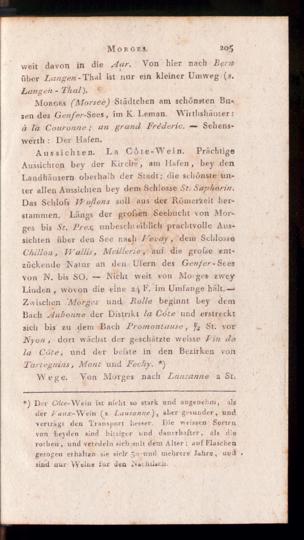 MORGES. 205
weit davon in die Aar. Von hier nach Bern
über Langen-Thal ist nur ein kleiner Umweg (s.
Langen-Thal).
MORGES (Morsee) Städtchen am schönsten Bu-
sen des Genfer-Sees, im K. Leman. Wirthshäuser:
à la Couronne; un grand Fréderic. — Sehens-
werth: Der Hafen.
Aussichten. La Côte-Wein. Prächtige
Aussichten bey der Kirche, am Hafen, bey den
Landhäusern oberhalb der Stadt; die schönste un-
ter allen Aussichten bey dem Schlosse St. Saphorin.
Das Schloß Wuflens soll aus der Römerzeit her-
stammen. Längs der großen Seebucht von Mor-
ges bis St. Prex unbeschreiblich prachtvolle Aus-
sichten über den See nach Vevay, dem Schlosse
Chillon, Wallis, Meillerie, auf die große ent-
zückende Natur an den Ufern des Genfer-Sees
von N. bis SO. — Nicht weit von Morges zwey
Linden, wovon die eine 24 F. im Umfange hält.—
Zwischen Morges und Rolle beginnt bey dem
Bach Aubonne der Distrikt la Côte und erstreckt
sich bis zu dem Bach Promontouse, St. vor
Nyon, dort wächst der geschätzte weisse Vin de
la Côte, und der beste in den Bezirken von
Tartegnins, Mont und Fechy. *)
Wege. Von Morges nach Lausanne 2 St.
*) Der Côte-Wein ist nicht so stark und angenehm, als
der Vaux-Wein (s. Lausanne), aber gesunder, und
verträgt den Transport besser. Die weissen Sorten
von beyden sind hitziger und dauerhafter, als die
rothen, und veredeln sich mit dem Alter; auf Flaschen
gezogen erhalten sie sich 30 und mehrere Jahre, und
sind nur Weine für den Nachtisch.